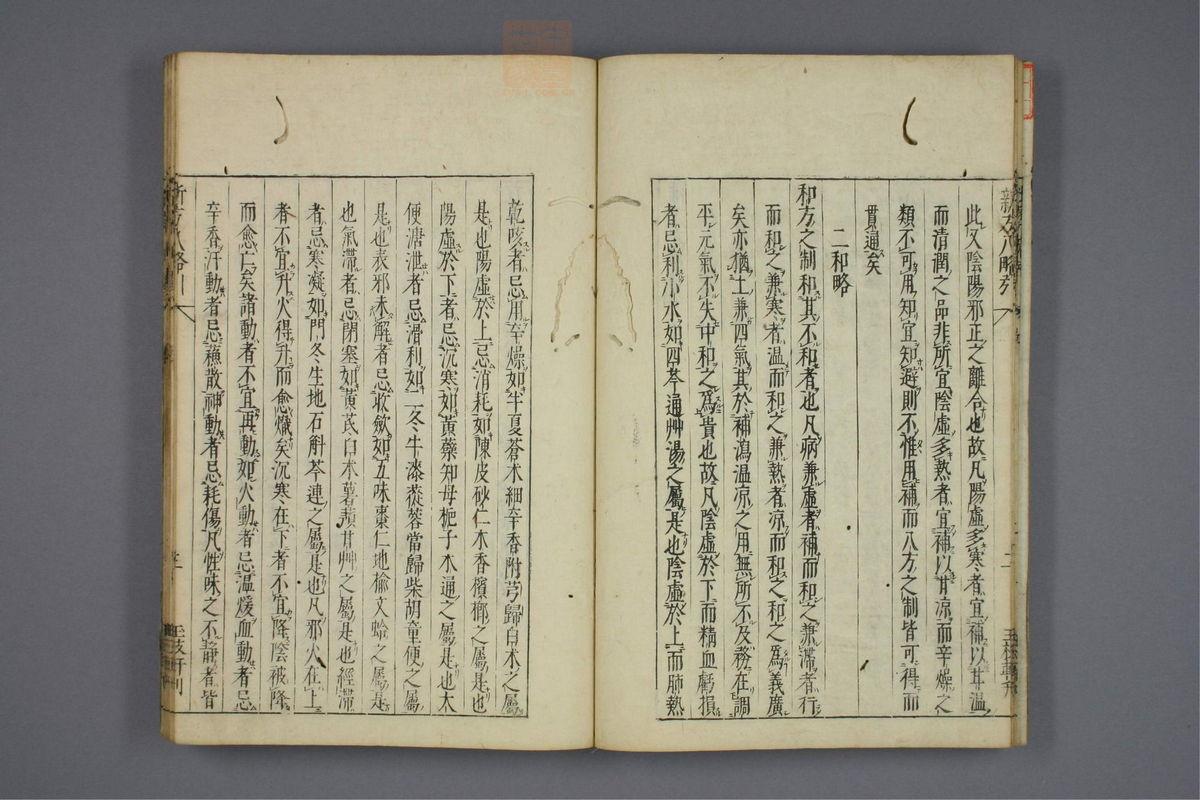 此又陰陽邪正之離合也故凡陽虛多寒者宜補以甘温
而清潤之品非所宜陰虛多熱者宜補以甘凉而辛燥之
類不可用知宜知避則不惟用補而八方之制皆可得而
貫通矣
二和略
和方之制和其不和者也凡病兼虛者補而和之兼滯者行
而和之兼寒者温而和之兼熱者凉而和之和之為義廣
矣亦猶土兼四氣其於補瀉温凉之用無所不及務在調
平元氣不失中和之為貴也故凡陰虛於下而精血虧損
者忌利小水如四苓通艸湯之屬是也陰虛於上而肺熱
乾咳者忌用辛燥如半夏蒼朮細辛香附芎歸白朮之屬
是也陽虛於上忌消耗如陳皮砂仁木香檳榔之屬是也
陽虛於下者忌沉寒如黃蘗知母梔子木通之屬是也大
便溏泄者忌滑利如二冬牛漆蓯蓉當歸柴胡童便之屬
是也表邪未解者忌收斂如五味棗仁地榆文蛤之屬是
也氣滯者忌閉塞如黃芪白朮薯蕷甘艸之屬是也經滯
者忌寒凝如門冬生地石斛芩連之屬是也凡邪火在上
者不宜升火得升而愈熾矣沉寒在下者不宜降陰被降
而愈亡矣諸動者不宜再動如火動者忌温煖血動者忌
辛香汗動者忌蘓散神動者忌耗傷凡性味之不靜者皆
新方八略引
二